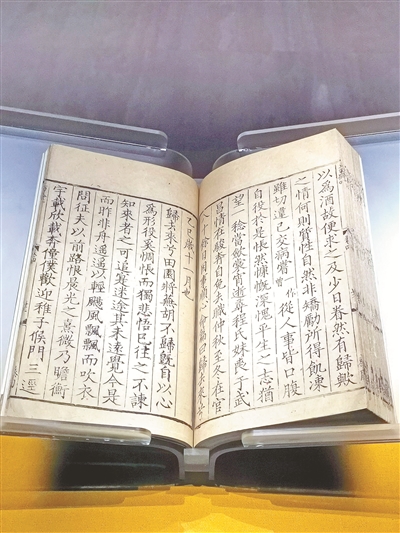 以為酒故便求之及少日眷然有歸歟
之情何則質性自然非矯勵所得飢凍
雖切違已交病嘗作從人事皆口腹
自役於是悵然慷慨深愧平生之志猶
望一稔當斂裳宵逝尋程氏妹喪于武
昌情在駿奔自免去職仲秋至冬在官
八十餘日因事順心命篇曰歸去來兮
乙巳歲十一月也
歸去來兮田園將蕪胡不歸既自以心
為形役奚惆悵而獨悲悟已往之不諫
知來者之可追寔迷途其未遠覺今是
而昨非舟遥遥以輕颺風飄飄而吹衣
問征夫以前路恨晨光之熹微乃瞻衡
宇載欣載奔僮僕歡迎稚子候門三逕